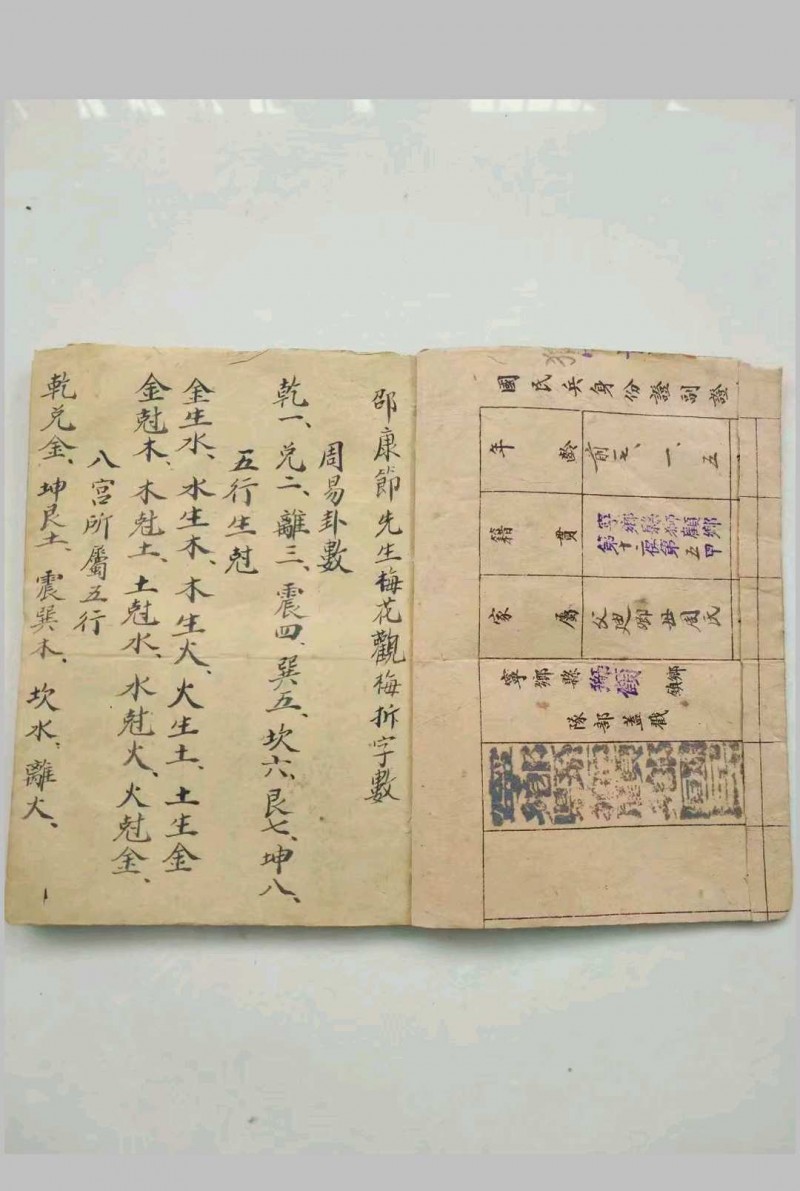 國民兵身份證副證
年齡 前二七、一、五
籍貫 寧鄉縣獅顧鄉
第十二保第五甲
家屬 父迪卿母周氏
寧鄉縣獅顧鄉鎮
隊部蓋戳
邵康節先生梅花觀梅拆字數
周易卦數
乾一、兌二、離三、震四、巽五、坎六、艮七、坤八、
五行生尅
金生水、水生木、木生火、火生土、土生金
金尅木、木尅土、土尅水、水尅火、火尅金、
八宮所屬五行
乾兌金、坤艮土、震巽木、坎水、離火、